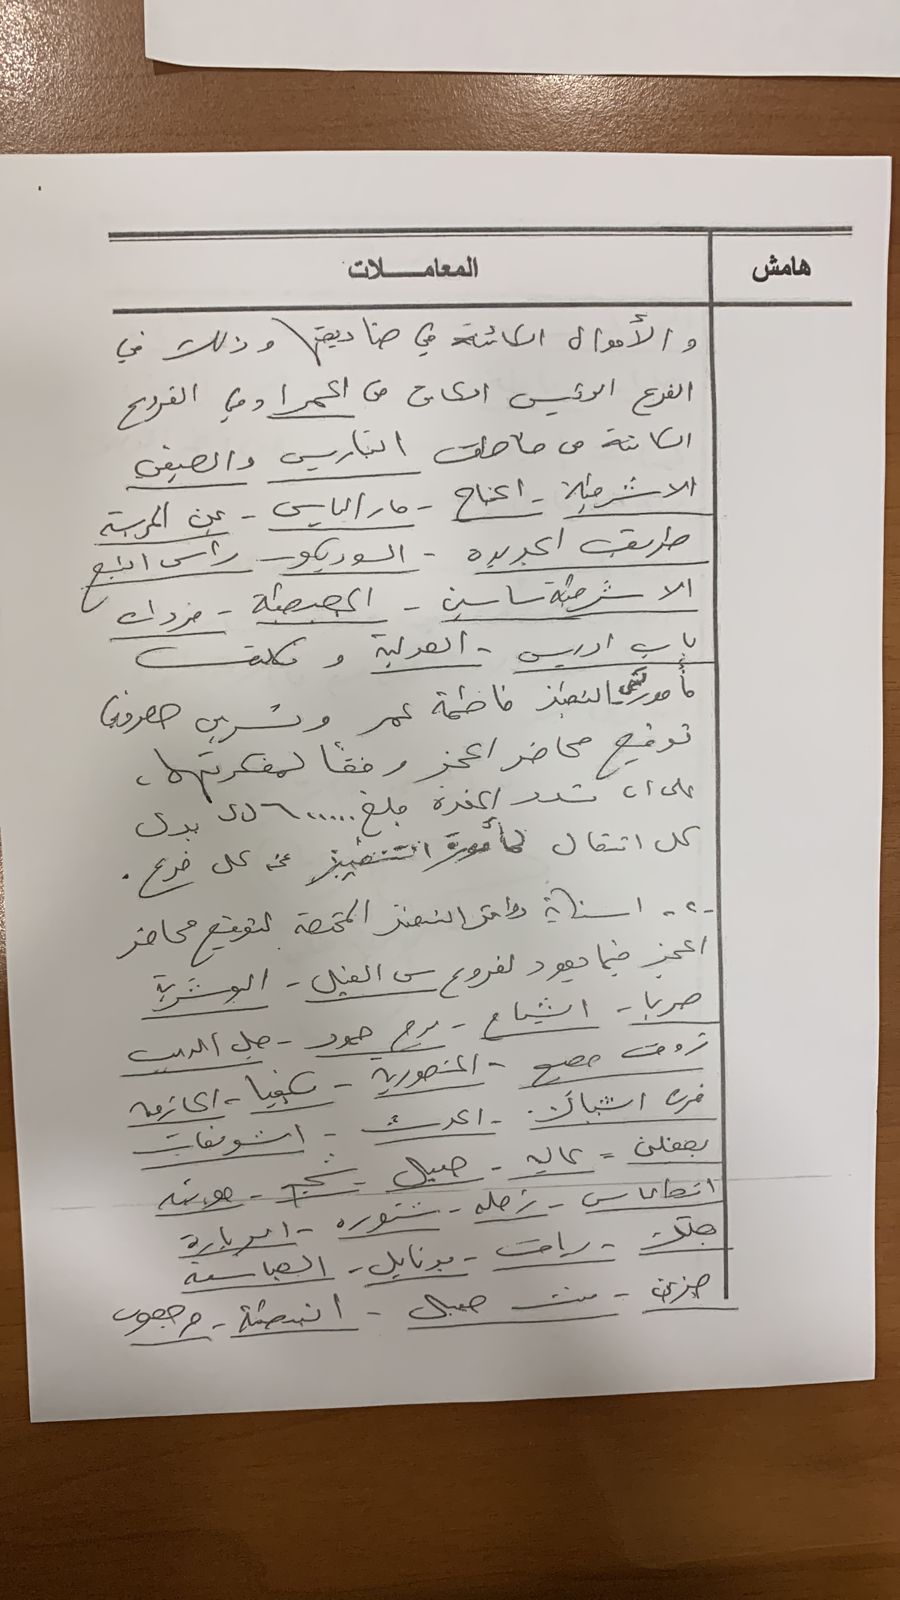 هامش
المعاملات
والأموال الكائنة في صناديقها وذلك في
الفرع الرئيسي الكائن في الحمرا وفي الفروع
الكائنة في مناطق المتاريس والصيفي
الاشرفية - الجناح - مار الياس - عين المريسة
طريق الجديدة - السوديكو - راس النبع
الاشرفية ساسين - المصيطبة - فردان
باب ادريس - العدلية وتكليف
مأمورتي التنفيذ فاطمة عمر ونسرين
توقيع محاضر الحجز وفقاً لمفكرتهما،
على ان تسدد المنفذة مبلغ ل.ل بدل
كل انتقال لمأمورة التنفيذ عن كل فرع.
-٢- استنابة دوائر التنفيذ المختصة لتوقيع محاضر
الحجز فيما يعود لفروع سن الفيل - البوشرية
صربا - الشياح - برج حمود - جل الديب
زوق مصبح - المنصورية - بكفيا - الحازمية
فرن الشباك - الحدث - الشويفات
بعقلين - عاليه - جبيل - شحيم - جونيه
انطلياس - زحله - شتوره - الدبارة
جلالا - رياق - بدنايل - العباسية
جزين - بنت جبيل - النبطية - مرجعيون